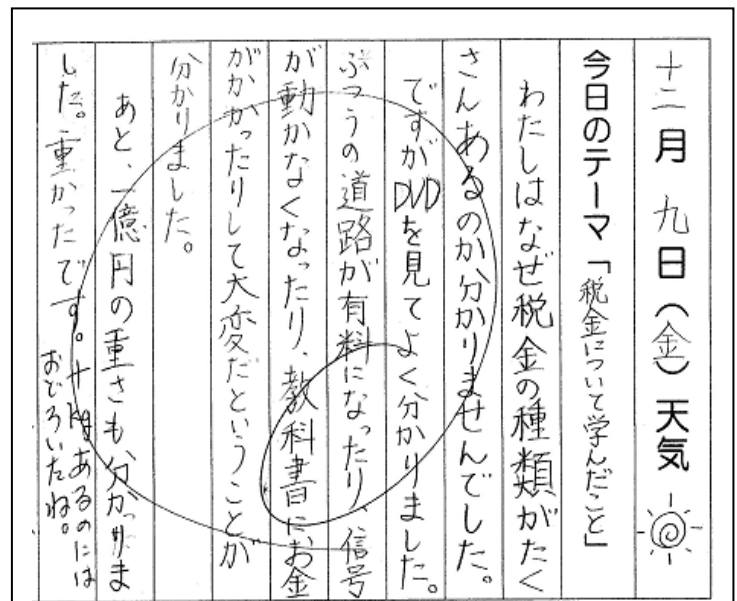 十二月九日（金）天気
今日のテーマ「税金について学んだこと」
わたしはなぜ税金の種類がたく
さんあるのか分かりませんでした。
ですがDVDを見てよく分かりました。
ふつうの道路が有料になったり、信号
が動かなくなったり、教科書にお金
がかかったりして大変だということが
分かりました。
あと、一億円の重さも分かりま
した。重かったです。
十kgあるのには
おどろいたね。